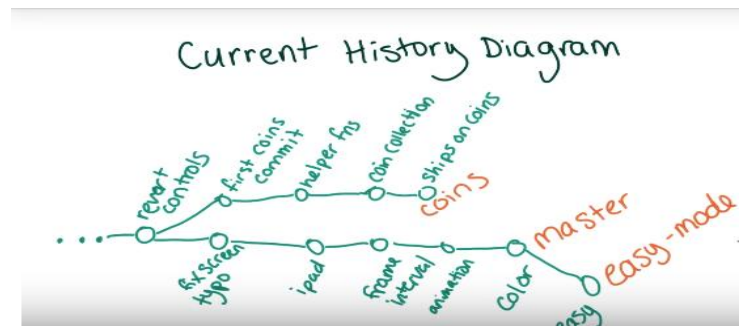 Current History Diagram
revert
controls
first coins
commit
helper fns
coin collection
ships on coins
coins
fix screen
typo
ipad
frame
interval
animation
color
master
easy-mode
easy